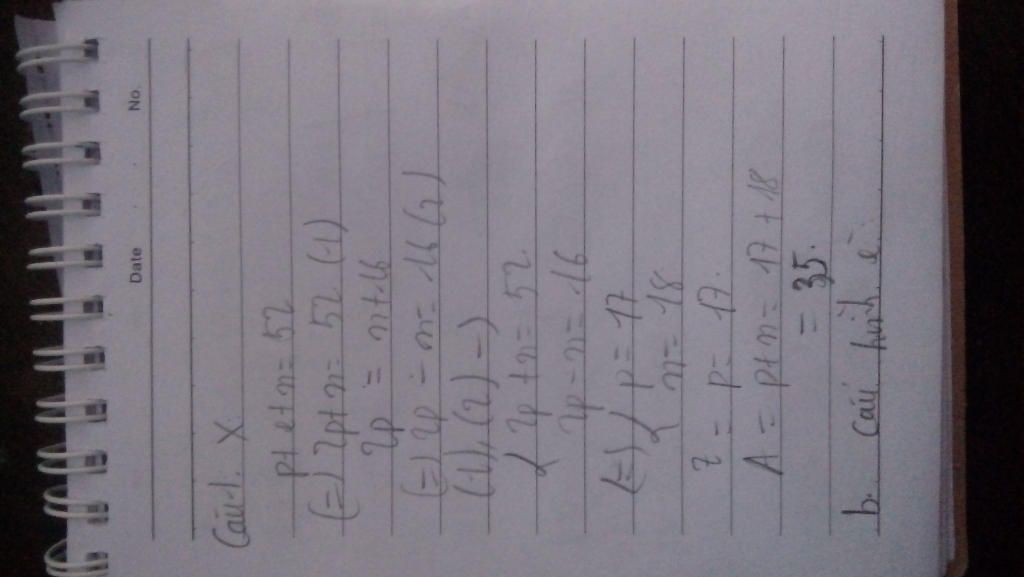 No.
Date
Câu 1: X.
p + e + n = 52
(=) 2p + n = 52 (1)
2p = n + 16
(=) 2p - n = 16 (2)
(1), (2) →
{ 2p + n = 52
2p - n = 16
(=) { p = 17
n = 18
Z = p = 17.
A = p + n = 17 + 18
= 35.
b. Cấu hình è: